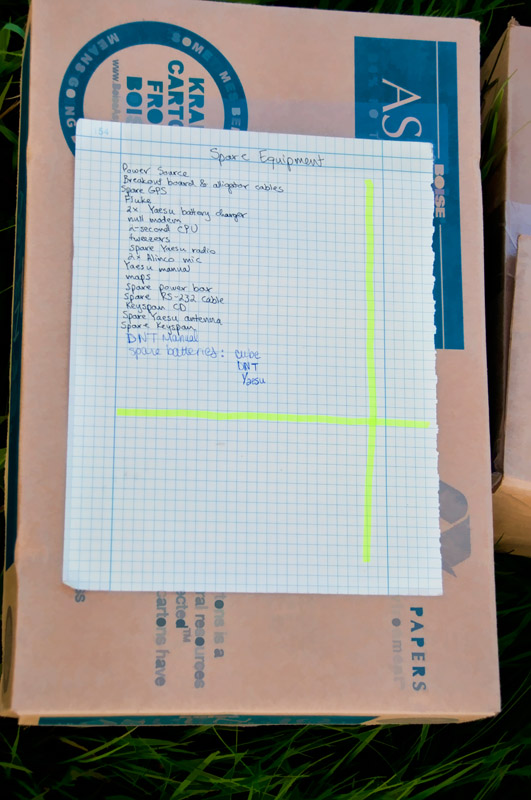 154
Spare Equipment
Power Source
Breakout board & aligator cables
Spare GPS
Fluke
2x Yaesu battery charger
null modem
n-second CPU
tweezers
spare Yaesu radio
2x Alinco mic
Yaesu manual
maps
spare power bar
Spare RS-232 Cable
Keyspan CD
Spare Yaesu antenna
Spare Keyspan
DNT Manual
Spare batteries: cube
DNT
Yaesu
KRA
CARTO
FRO
BOI
MEANS GO NG
AS
BOISE
PAPERS
tons is a
ral resources
ected™
cartons have